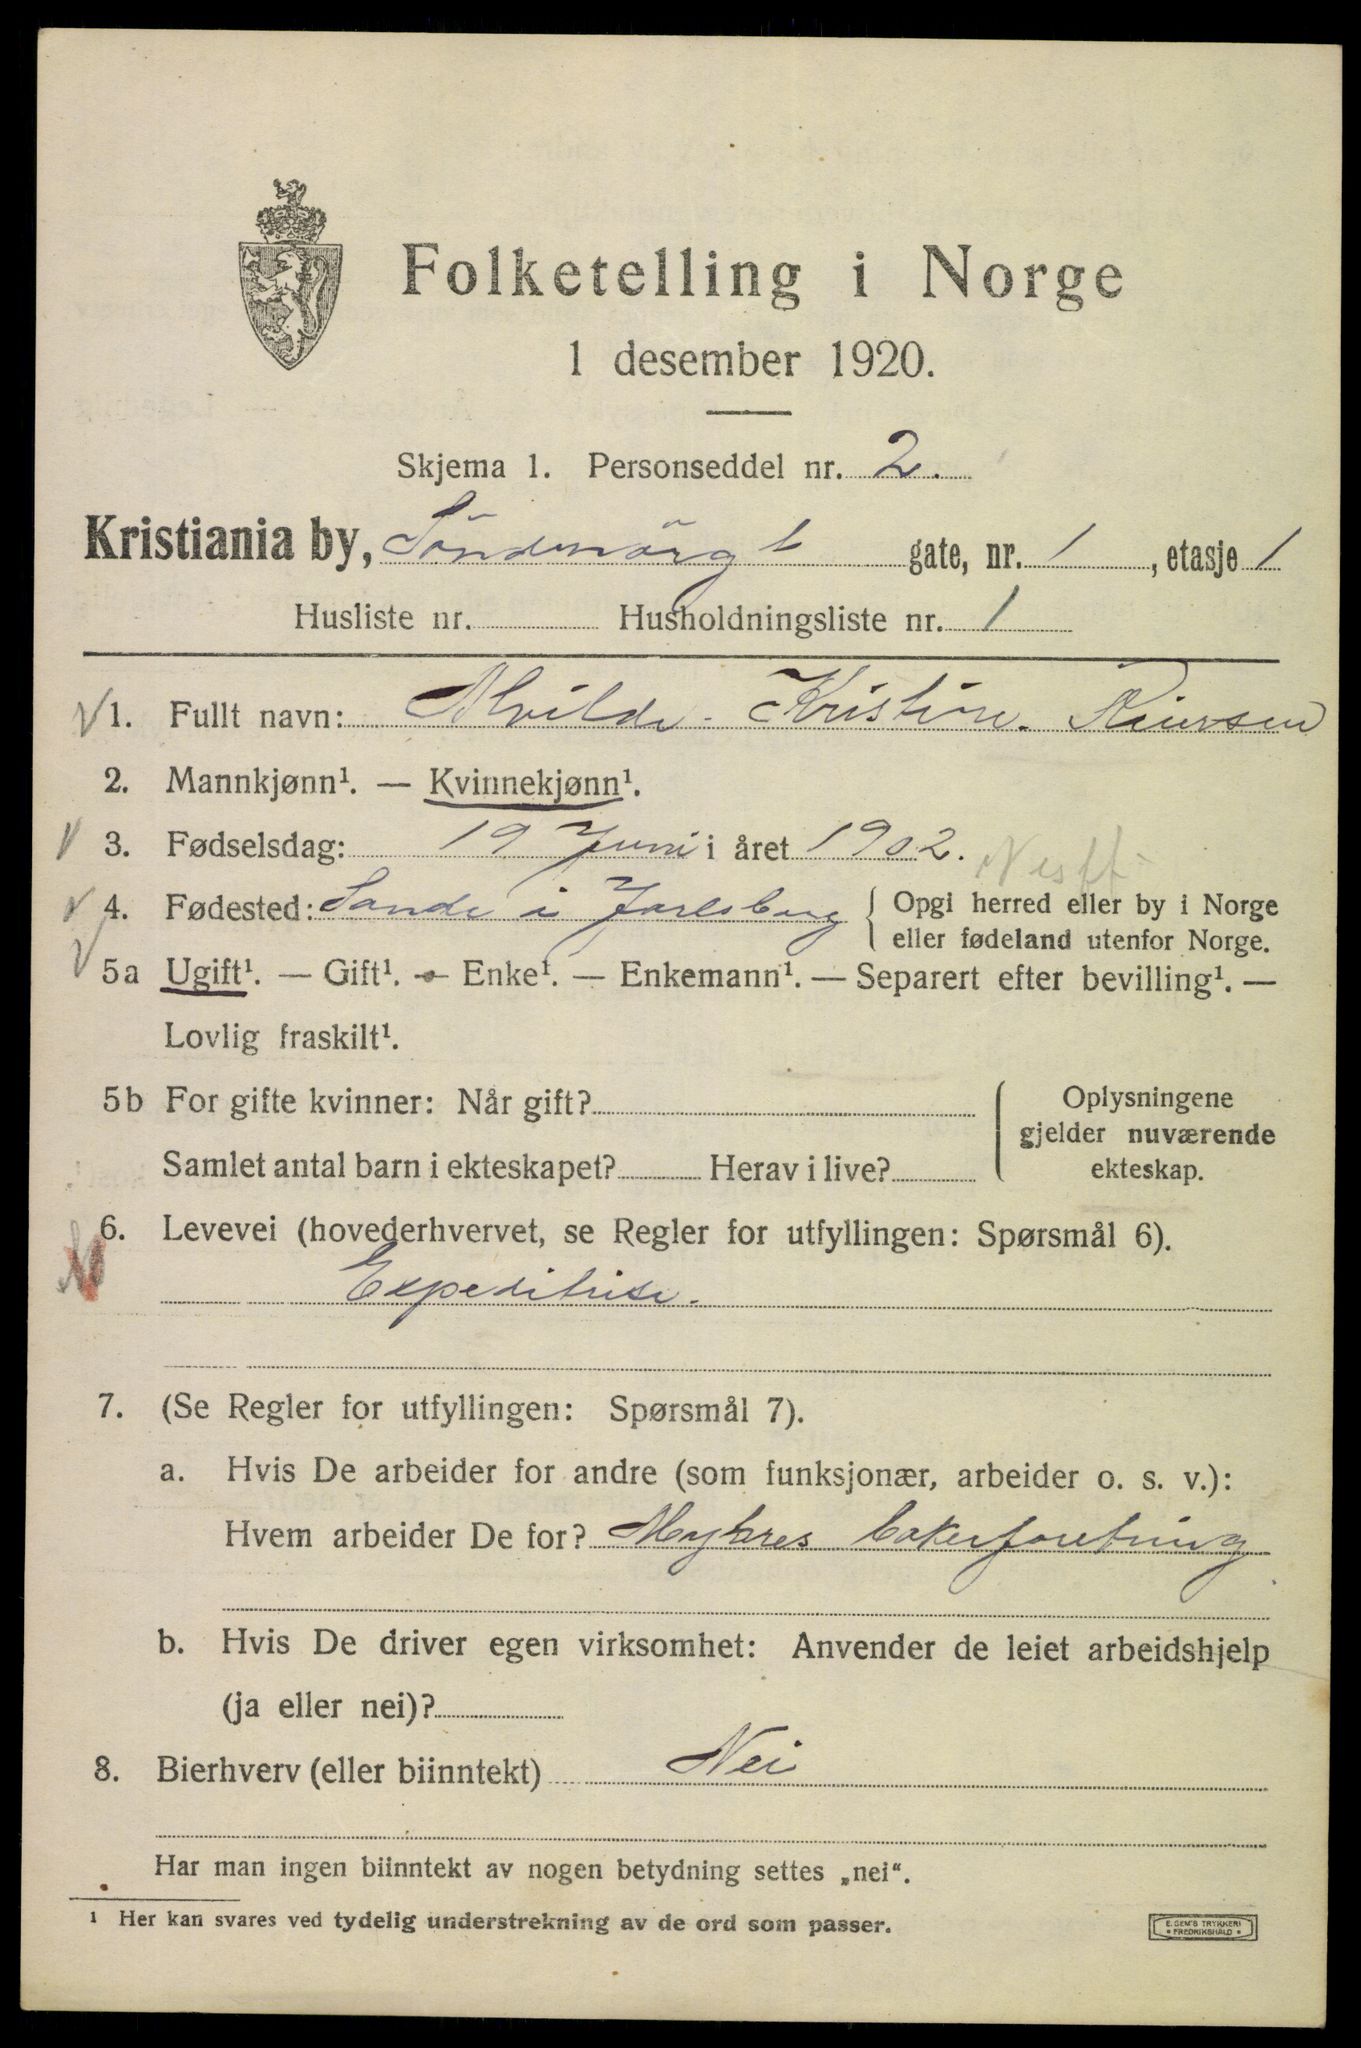 Folketelling i Norge
1 desember 1920.
Skjema 1. Personseddel nr. 2.
Kristiania by, Söndmörgt gate, nr. 1, etasje 1
Husliste nr. Husholdningsliste nr. 1
1. Fullt navn: Alvilde Kristine
2. Mannkjønn¹. — Kvinnekjønn¹.
3. Fødselsdag: 19 Juni i året 1902.
4. Fødested: Sande i Jarlsberg { Opgi herred eller by i Norge
eller fødeland utenfor Norge.
5a Ugift¹. — Gift¹. — Enke¹. — Enkemann¹. — Separert efter bevilling¹. —
Lovlig fraskilt¹.
5b For gifte kvinner: Når gift?
Samlet antal barn i ekteskapet? Herav i live?
Oplysningene
gjelder nuværende
ekteskap.
6. Levevei (hovederhvervet, se Regler for utfyllingen: Spørsmål 6).
Expeditrise.
7. (Se Regler for utfyllingen: Spørsmål 7).
a. Hvis De arbeider for andre (som funksjonær, arbeider o. s. v.):
Hvem arbeider De for? Myhres bakerforetning
b. Hvis De driver egen virksomhet: Anvender de leiet arbeidshjelp
(ja eller nei)?
8. Bierhverv (eller biinntekt) Nei
Har man ingen biinntekt av nogen betydning settes „nei“.
¹ Her kan svares ved tydelig understrekning av de ord som passer.
E. SEM'S TRYKKERI
FREDRIKSHALD